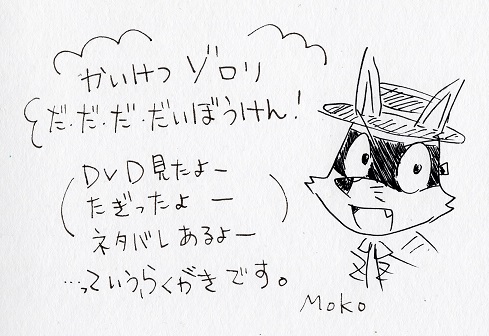 かいけつ ゾロリ
だ・だ・だ・だいぼうけん!
DVD見たよー
たぎったよー
ネタバレあるよー
…っていうらくがきです。
Moko